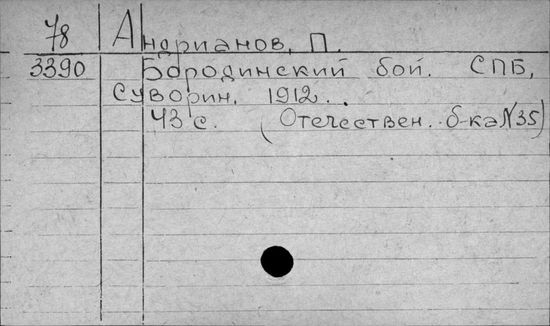 78 Андрианов, П.
3390 Бородинский бой. СПБ,
Суворин, 1912.
43 с. (Отечествен. б-ка №35)